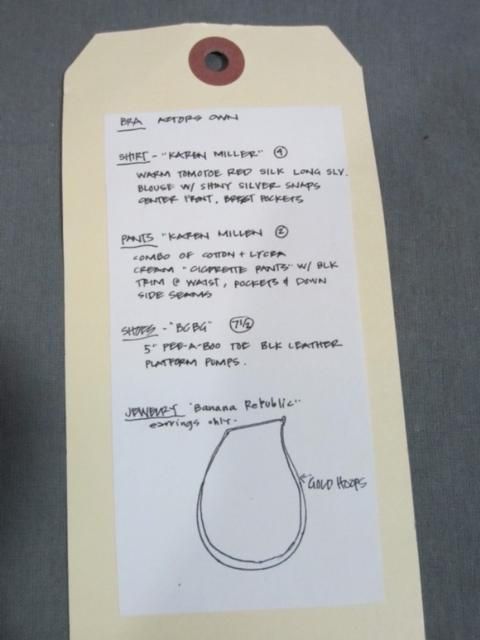 BRA ACTORS OWN
SHIRT - "KAREN MILLER" 4
WARM TOMOTOE RED SILK LONG SLV.
BLOUSE W/ SHINY SILVER SNAPS
CENTER FRONT, BREST POCKETS
PANTS "KAREN MILLEN" 2
COMBO OF COTTON + LYCRA
CREAM "CIGARETTE PANTS" W/ BLK
TRIM @ WAIST, POCKETS & DOWN
SIDE SEAMS
SHOES - "BCBG" 7 1/2
5" PEE-A-BOO TOE BLK LEATHER
PLATFORM PUMPS.
JEWELRY "Banana Republic"
earrings only.
GOLD HOOPS